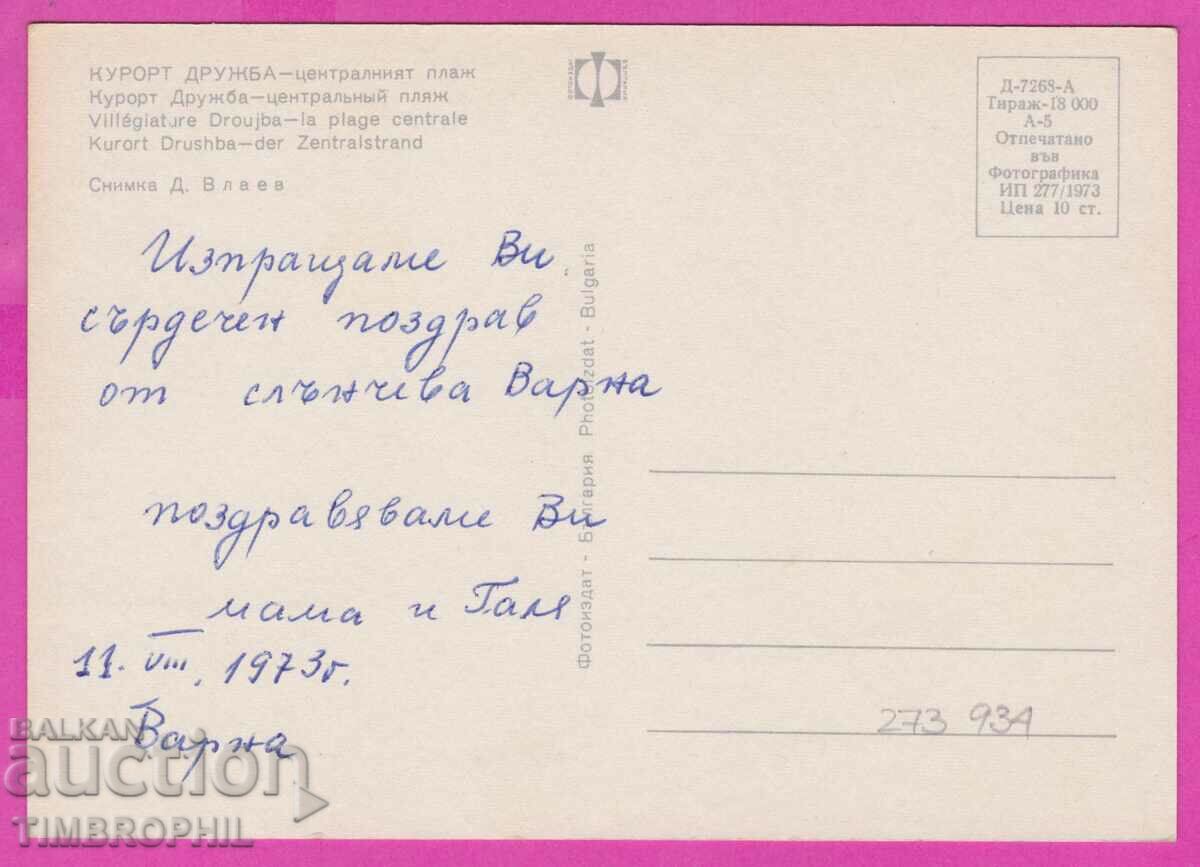 КУРОРТ ДРУЖБА—централният плаж
Курорт Дружба—центральный пляж
Villégiature Droujba—la plage centrale
Kurort Drushba—der Zentralstrand
Снимка Д. Влаев
Д-7268-А
Тираж-18 000
А-5
Отпечатано
във
Фотографика
ИП 277/1973
Цена 10 ст.
Изпращаме Ви
сърдечен поздрав
от слънчева Варна
поздравяваме Ви
мама и Галя
11. VIII. 1973г.
Варна
Фотоиздат - България Photoizdat - Bulgaria
273 934
BALKAN
auction
TIMBROPHIL